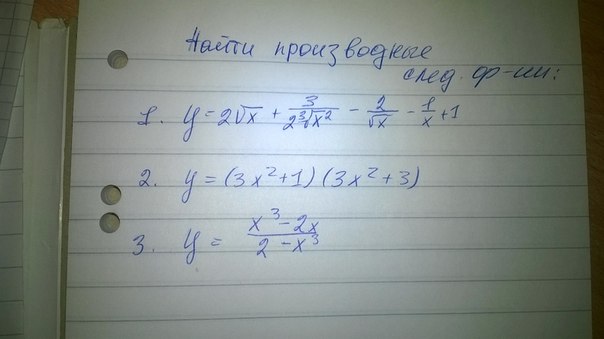 Найти производные
след. ф-ии:
1. y = 2√x + 3/(2∛x²) - 2/√x - 1/x + 1
2. y = (3x²+1)(3x²+3)
3. y = (x³-2x)/(2-x³)